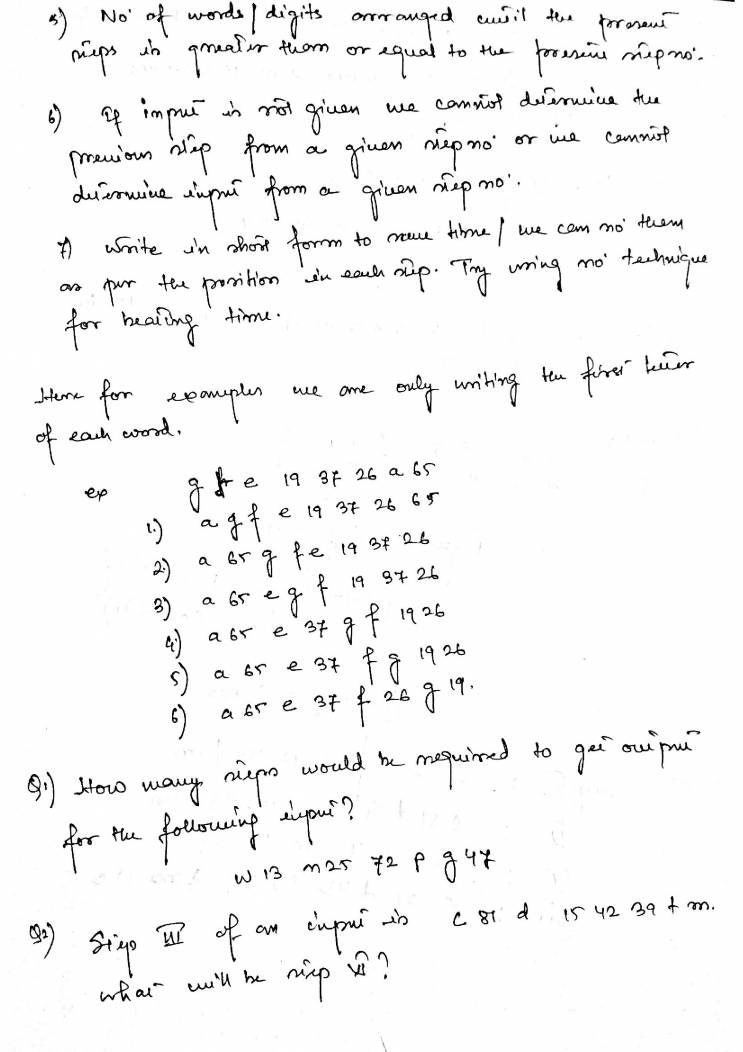 5) No. of words/digits arranged until the present
steps is greater than or equal to the present step no.
6) If input is not given we cannot determine the
previous step from a given step no. or we cannot
determine input from a given step no.
7) Write in short form to save time/ we can no. them
as per the position in each step. Try using no. technique
for beating time.
Here for examples we are only writing the first letter
of each word.
ex g f e 19 37 26 a 65
1.) a g f e 19 37 26 65
2.) a 65 g f e 19 37 26
3) a 65 e g f 19 37 26
4) a 65 e 37 g f 19 26
5) a 65 e 37 f g 19 26
6) a 65 e 37 f 26 g 19.
Q1) How many steps would be required to get output
for the following input?
W 13 n 25 72 P g 47
Q2) Step III of an input is c 81 d 15 42 39 t m.
what will be step VI?